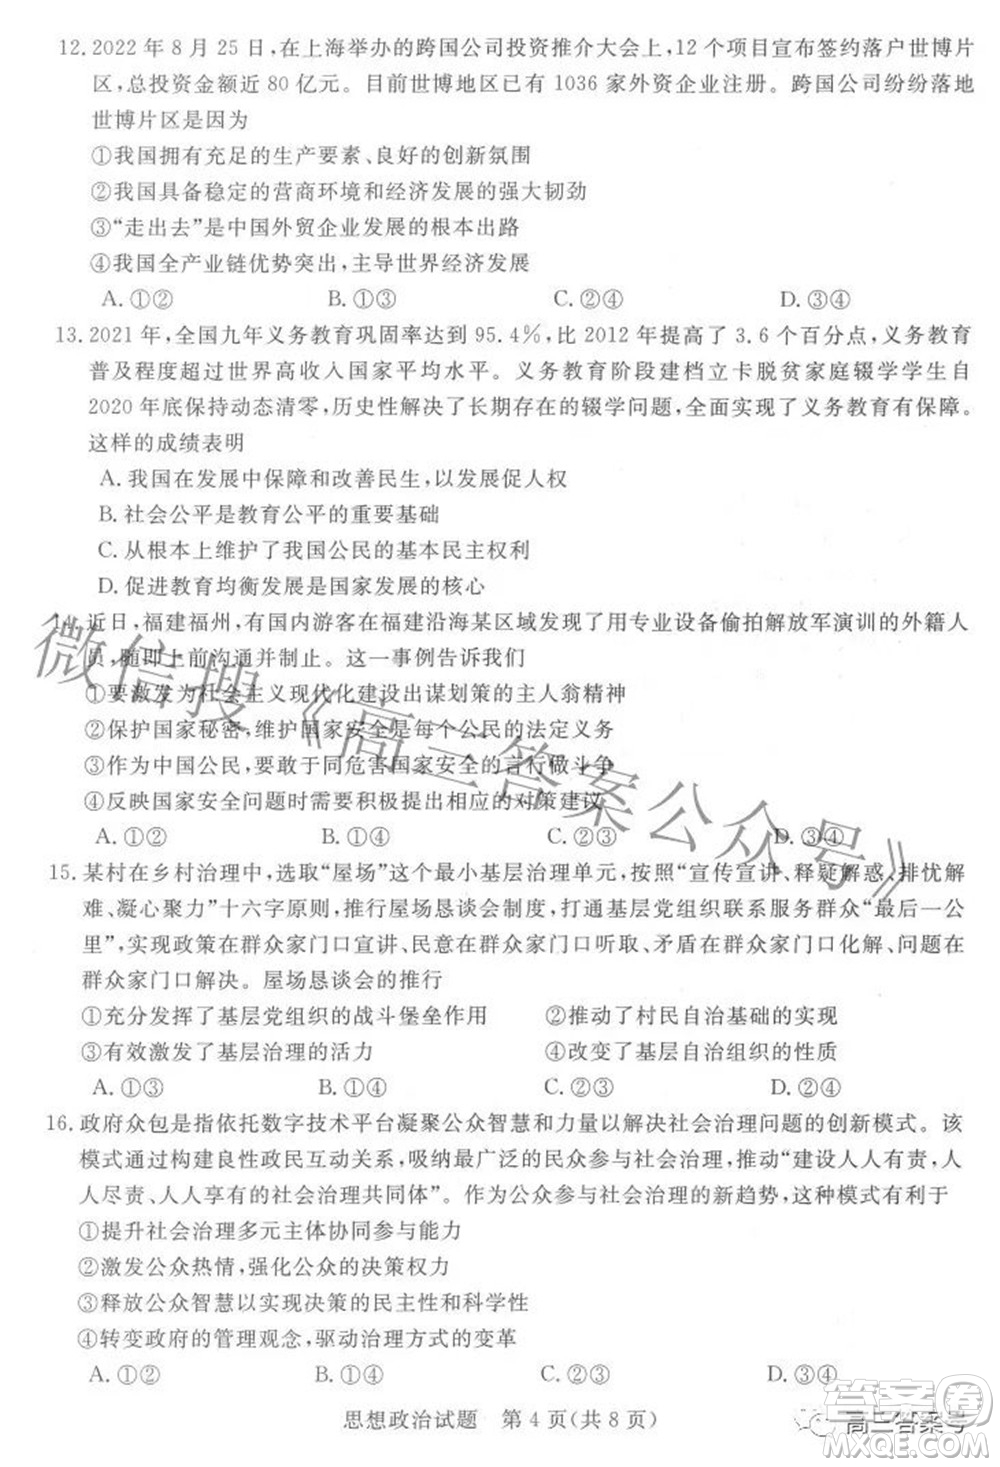 12. 2022 年 8 月 25 日，在上海举办的跨国公司投资推介大会上，12 个项目宣布签约落户世博片
区，总投资金额近 80 亿元。目前世博地区已有 1036 家外资企业注册。跨国公司纷纷落地
世博片区是因为
①我国拥有充足的生产要素、良好的创新氛围
②我国具备稳定的营商环境和经济发展的强大韧劲
③“走出去”是中国外贸企业发展的根本出路
④我国全产业链优势突出，主导世界经济发展
A. ①② B. ①③ C. ②④ D. ③④
13. 2021 年，全国九年义务教育巩固率达到 95.4%，比 2012 年提高了 3.6 个百分点，义务教育
普及程度超过世界高收入国家平均水平。义务教育阶段建档立卡脱贫家庭辍学学生自
2020 年底保持动态清零，历史性解决了长期存在的辍学问题，全面实现了义务教育有保障。
这样的成绩表明
A. 我国在发展中保障和改善民生，以发展促人权
B. 社会公平是教育公平的重要基础
C. 从根本上维护了我国公民的基本民主权利
D. 促进教育均衡发展是国家发展的核心
14. 近日，福建福州，有国内游客在福建沿海某区域发现了用专业设备偷拍解放军演训的外籍人
员，随即上前沟通并制止。这一事例告诉我们
①要激发为社会主义现代化建设出谋划策的主人翁精神
②保护国家秘密，维护国家安全是每个公民的法定义务
③作为中国公民，要敢于同危害国家安全的言行做斗争
④反映国家安全问题时需要积极提出相应的对策建议
A. ①② B. ①④ C. ②③ D. ③④
15. 某村在乡村治理中，选取“屋场”这个最小基层治理单元，按照“宣传宣讲、释疑解惑、排忧解
难、凝心聚力”十六字原则，推行屋场恳谈会制度，打通基层党组织联系服务群众“最后一公
里”，实现政策在群众家门口宣讲、民意在群众家门口听取、矛盾在群众家门口化解、问题在
群众家门口解决。屋场恳谈会的推行
①充分发挥了基层党组织的战斗堡垒作用 ②推动了村民自治基础的实现
③有效激发了基层治理的活力 ④改变了基层自治组织的性质
A. ①③ B. ①④ C. ②③ D. ②④
16. 政府众包是指依托数字技术平台凝聚公众智慧和力量以解决社会治理问题的创新模式。该
模式通过构建良性政民互动关系，吸纳最广泛的民众参与社会治理，助力“建设人人有责、
人人尽责、人人享有的社会治理共同体”。作为公众参与社会治理的新趋势，这种模式有利于
①提升社会治理多元主体协同参与能力
②激发公众热情，强化公众的决策权力
③释放公众智慧以实现决策的民主性和科学性
④转变政府的管理观念，驱动治理方式的变革
A. ①② B. ①④ C. ②③ D. ③④
思想政治试题 第 4 页（共 8 页）
微信搜《高三答案公众号》
高三答案号
答案圈
MXQE.COM